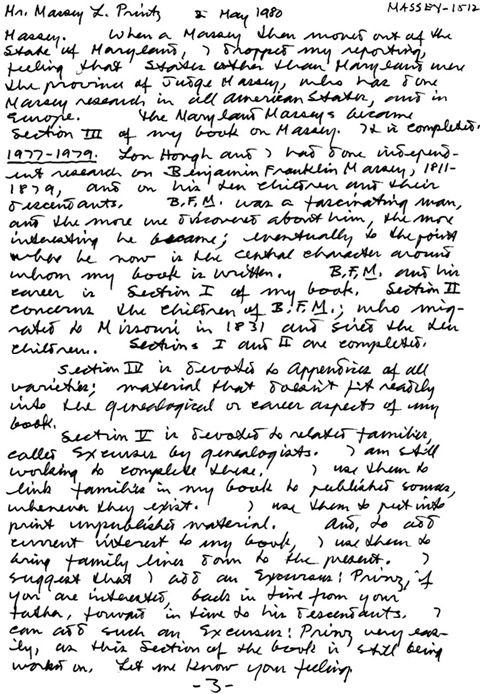 Mr. Massey L. Printz 2 May 1980 MASSEY-1512
Massey. When a Massey then moved out of the
State of Maryland, I dropped my reporting,
feeling that States other than Maryland were
the province of Judge Massey, who has done
Massey research in all American States, and in
Europe. The Maryland Masseys became
Section III of my book on Massey. It is completed.
1977-1979. Lon Hough and I had done independ-
ent research on Benjamin Franklin Massey, 1811-
1879, and on his ten children and their
descendants. B.F.M. was a fascinating man,
and the more we discovered about him, the more
interesting he became; eventually to the point
where he now is the central character around
whom my book is written. B.F.M. and his
career is Section I of my book. Section II
concerns the children of B.F.M.; who mig-
rated to Missouri in 1831 and sired the ten
children. Sections I and II are completed.
Section IV is devoted to Appendices of all
varieties; material that doesn't fit readily
into the genealogical or career aspects of my
book.
Section V is devoted to related families,
called Excursus by genealogists. I am still
working to complete these. I use them to
link families in my book to published sources,
whenever they exist. I use them to put into
print unpublished material. And, to add
current interest to my book, I use them to
bring family lines down to the present. I
suggest that I add an Excursus: Prinz, if
you are interested, back in time from your
father, forward in time to his descendants. I
can add such an Excursus: Prinz very eas-
ily, as this Section of the book is still being
worked on. Let me know your feeling
-3-